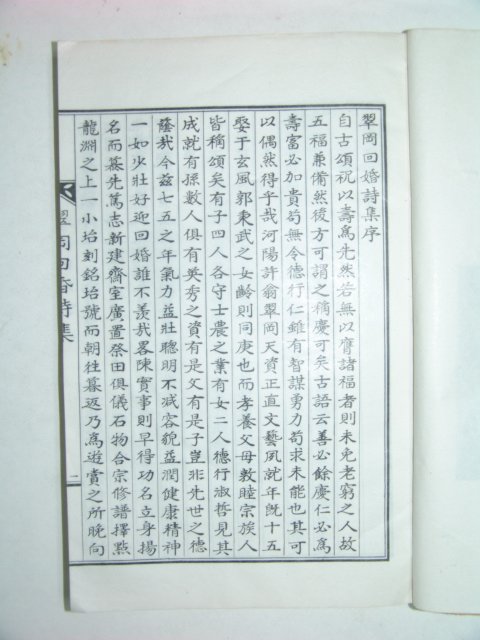 翠岡回婚詩集序
自古頌祝以壽爲先然若無以膺諸福者則未免老窮之人故
五福兼備然後方可謂之稱慶可矣古語云善必餘慶仁必爲
壽富必加貴苟無令德行仁雖有智謀勇力苟求未能也其可
以偶然得乎哉河陽許翁翠岡天資正直文藝夙就年旣十五
娶于玄風郭秉武之女齡則同庚也而孝養父母敦睦宗族人
皆稱頌矣有子四人各守士農之業有女二人德行淑哲見其
成就有孫數人俱有英秀之資有是父有是子豈非先世之德
蔭哉今玆七五之年氣力益壯聰明不減容貌益潤健康精神
一如少壯好迎回婚誰不羨哉畧陳實事則早得功名立身揚
名而慕先篤志新建齋室廣置祭田俱儀石物合宗修譜擇點
龍淵之上一小坮刻銘坮號而朝往暮返乃爲遊賞之所晩向
翠岡回婚詩集
一